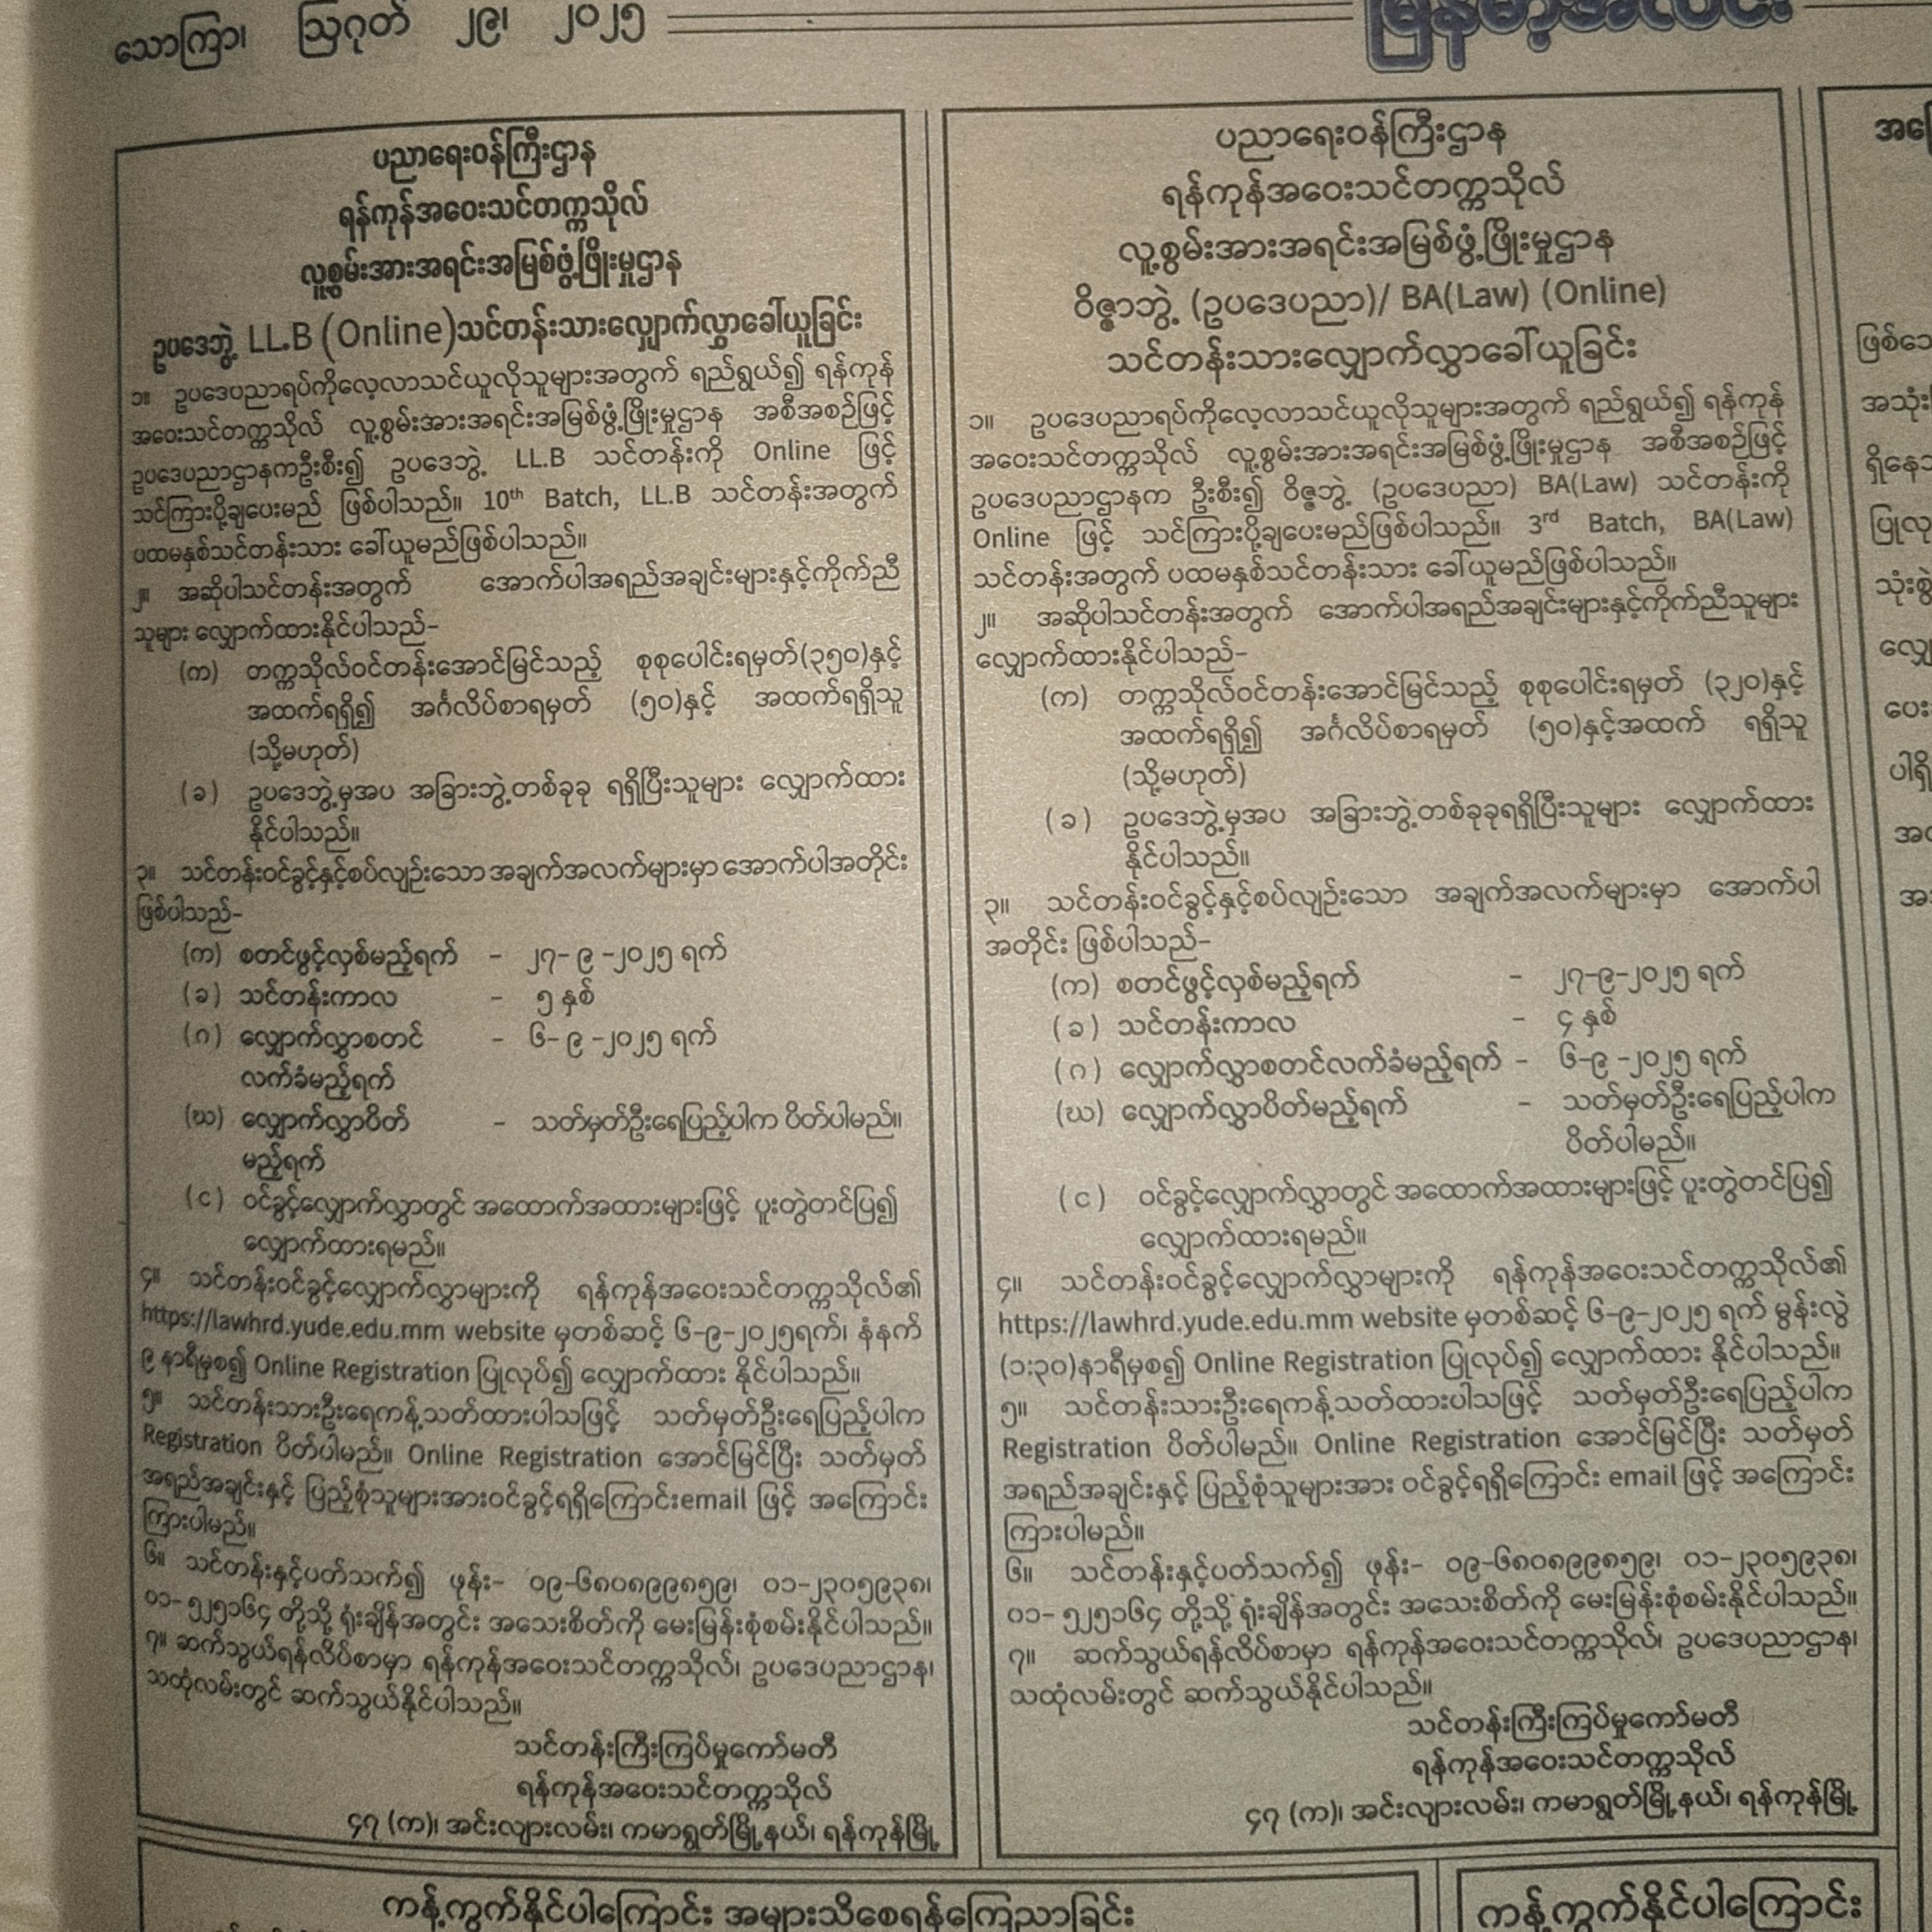 သောကြာ၊ ဩဂုတ် ၂၉၊ ၂၀၂၅
မြန်မာ့အလင်း
ပညာရေးဝန်ကြီးဌာန
ရန်ကုန်အဝေးသင်တက္ကသိုလ်
လူ့စွမ်းအားအရင်းအမြစ်ဖွံ့ဖြိုးမှုဌာန
ဥပဒေဘွဲ့ LL.B (Online)သင်တန်းသားလျှောက်လွှာခေါ်ယူခြင်း
၁။ ဥပဒေပညာရပ်ကိုလေ့လာသင်ယူလိုသူများအတွက် ရည်ရွယ်၍ ရန်ကုန်
အဝေးသင်တက္ကသိုလ် လူ့စွမ်းအားအရင်းအမြစ်ဖွံ့ဖြိုးမှုဌာန အစီအစဉ်ဖြင့်
ဥပဒေပညာဌာနကဦးစီး၍ ဥပဒေဘွဲ့ LL.B သင်တန်းကို Online ဖြင့်
သင်ကြားပို့ချပေးမည် ဖြစ်ပါသည်။ 10th Batch, LL.B သင်တန်းအတွက်
ပထမနှစ်သင်တန်းသား ခေါ်ယူမည်ဖြစ်ပါသည်။
၂။ အဆိုပါသင်တန်းအတွက် အောက်ပါအရည်အချင်းများနှင့်ကိုက်ညီ
သူများ လျှောက်ထားနိုင်ပါသည်-
(က) တက္ကသိုလ်ဝင်တန်းအောင်မြင်သည့် စုစုပေါင်းရမှတ်(၃၅၀)နှင့်
အထက်ရရှိ၍ အင်္ဂလိပ်စာရမှတ် (၅၀)နှင့် အထက်ရရှိသူ
(သို့မဟုတ်)
(ခ) ဥပဒေဘွဲ့မှအပ အခြားဘွဲ့တစ်ခုခု ရရှိပြီးသူများ လျှောက်ထား
နိုင်ပါသည်။
၃။ သင်တန်းဝင်ခွင့်နှင့်စပ်လျဉ်းသော အချက်အလက်များမှာ အောက်ပါအတိုင်း
ဖြစ်ပါသည်-
(က) စတင်ဖွင့်လှစ်မည့်ရက် - ၂၇- ၉ -၂၀၂၅ ရက်
(ခ) သင်တန်းကာလ - ၅ နှစ်
(ဂ) လျှောက်လွှာစတင် - ၆- ၉ -၂၀၂၅ ရက်
လက်ခံမည့်ရက်
(ဃ) လျှောက်လွှာပိတ် - သတ်မှတ်ဦးရေပြည့်ပါက ပိတ်ပါမည်။
မည့်ရက်
(င) ဝင်ခွင့်လျှောက်လွှာတွင် အထောက်အထားများဖြင့် ပူးတွဲတင်ပြ၍
လျှောက်ထားရမည်။
၄။ သင်တန်းဝင်ခွင့်လျှောက်လွှာများကို ရန်ကုန်အဝေးသင်တက္ကသိုလ်၏
https://lawhrd.yude.edu.mm website မှတစ်ဆင့် ၆-၉-၂၀၂၅ရက်၊ နံနက်
၉ နာရီမှစ၍ Online Registration ပြုလုပ်၍ လျှောက်ထား နိုင်ပါသည်။
၅။ သင်တန်းသားဦးရေကန့်သတ်ထားပါသဖြင့် သတ်မှတ်ဦးရေပြည့်ပါက
Registration ပိတ်ပါမည်။ Online Registration အောင်မြင်ပြီး သတ်မှတ်
အရည်အချင်းနှင့် ပြည့်စုံသူများအားဝင်ခွင့်ရရှိကြောင်းemail ဖြင့် အကြောင်း
ကြားပါမည်။
၆။ သင်တန်းနှင့်ပတ်သက်၍ ဖုန်း- ၀၉-၆၈၀၈၉၉၈၅၉၊ ၀၁-၂၃၀၅၉၃၈၊
၀၁- ၅၂၅၁၆၄ တို့သို့ ရုံးချိန်အတွင်း အသေးစိတ်ကို မေးမြန်းစုံစမ်းနိုင်ပါသည်။
၇။ ဆက်သွယ်ရန်လိပ်စာမှာ ရန်ကုန်အဝေးသင်တက္ကသိုလ်၊ ဥပဒေပညာဌာန၊
သထုံလမ်းတွင် ဆက်သွယ်နိုင်ပါသည်။
သင်တန်းကြီးကြပ်မှုကော်မတီ
ရန်ကုန်အဝေးသင်တက္ကသိုလ်
၄၇ (က)၊ အင်းလျားလမ်း၊ ကမာရွတ်မြို့နယ်၊ ရန်ကုန်မြို့
ပညာရေးဝန်ကြီးဌာန
ရန်ကုန်အဝေးသင်တက္ကသိုလ်
လူ့စွမ်းအားအရင်းအမြစ်ဖွံ့ဖြိုးမှုဌာန
ဝိဇ္ဇာဘွဲ့ (ဥပဒေပညာ)/ BA(Law) (Online)
သင်တန်းသားလျှောက်လွှာခေါ်ယူခြင်း
၁။ ဥပဒေပညာရပ်ကိုလေ့လာသင်ယူလိုသူများအတွက် ရည်ရွယ်၍ ရန်ကုန်
အဝေးသင်တက္ကသိုလ် လူ့စွမ်းအားအရင်းအမြစ်ဖွံ့ဖြိုးမှုဌာန အစီအစဉ်ဖြင့်
ဥပဒေပညာဌာနက ဦးစီး၍ ဝိဇ္ဇဘွဲ့ (ဥပဒေပညာ) BA(Law) သင်တန်းကို
Online ဖြင့် သင်ကြားပို့ချပေးမည်ဖြစ်ပါသည်။ 3rd Batch, BA(Law)
သင်တန်းအတွက် ပထမနှစ်သင်တန်းသား ခေါ်ယူမည်ဖြစ်ပါသည်။
၂။ အဆိုပါသင်တန်းအတွက် အောက်ပါအရည်အချင်းများနှင့်ကိုက်ညီသူများ
လျှောက်ထားနိုင်ပါသည်-
(က) တက္ကသိုလ်ဝင်တန်းအောင်မြင်သည့် စုစုပေါင်းရမှတ် (၃၂၀)နှင့်
အထက်ရရှိ၍ အင်္ဂလိပ်စာရမှတ် (၅၀)နှင့်အထက် ရရှိသူ
(သို့မဟုတ်)
(ခ) ဥပဒေဘွဲ့မှအပ အခြားဘွဲ့တစ်ခုခုရရှိပြီးသူများ လျှောက်ထား
နိုင်ပါသည်။
၃။ သင်တန်းဝင်ခွင့်နှင့်စပ်လျဉ်းသော အချက်အလက်များမှာ အောက်ပါ
အတိုင်း ဖြစ်ပါသည်-
(က) စတင်ဖွင့်လှစ်မည့်ရက် - ၂၇-၉-၂၀၂၅ ရက်
(ခ) သင်တန်းကာလ - ၄ နှစ်
(ဂ) လျှောက်လွှာစတင်လက်ခံမည့်ရက် - ၆-၉ -၂၀၂၅ ရက်
(ဃ) လျှောက်လွှာပိတ်မည့်ရက် - သတ်မှတ်ဦးရေပြည့်ပါက
ပိတ်ပါမည်။
(င) ဝင်ခွင့်လျှောက်လွှာတွင် အထောက်အထားများဖြင့် ပူးတွဲတင်ပြ၍
လျှောက်ထားရမည်။
၄။ သင်တန်းဝင်ခွင့်လျှောက်လွှာများကို ရန်ကုန်အဝေးသင်တက္ကသိုလ်၏
https://lawhrd.yude.edu.mm website မှတစ်ဆင့် ၆-၉-၂၀၂၅ ရက် မွန်းလွဲ
(၁:၃၀)နာရီမှစ၍ Online Registration ပြုလုပ်၍ လျှောက်ထား နိုင်ပါသည်။
၅။ သင်တန်းသားဦးရေကန့်သတ်ထားပါသဖြင့် သတ်မှတ်ဦးရေပြည့်ပါက
Registration ပိတ်ပါမည်။ Online Registration အောင်မြင်ပြီး သတ်မှတ်
အရည်အချင်းနှင့် ပြည့်စုံသူများအား ဝင်ခွင့်ရရှိကြောင်း email ဖြင့် အကြောင်း
ကြားပါမည်။
၆။ သင်တန်းနှင့်ပတ်သက်၍ ဖုန်း- ၀၉-၆၈၀၈၉၉၈၅၉၊ ၀၁-၂၃၀၅၉၃၈၊
၀၁- ၅၂၅၁၆၄ တို့သို့ ရုံးချိန်အတွင်း အသေးစိတ်ကို မေးမြန်းစုံစမ်းနိုင်ပါသည်။
၇။ ဆက်သွယ်ရန်လိပ်စာမှာ ရန်ကုန်အဝေးသင်တက္ကသိုလ်၊ ဥပဒေပညာဌာန၊
သထုံလမ်းတွင် ဆက်သွယ်နိုင်ပါသည်။
သင်တန်းကြီးကြပ်မှုကော်မတီ
ရန်ကုန်အဝေးသင်တက္ကသိုလ်
၄၇ (က)၊ အင်းလျားလမ်း၊ ကမာရွတ်မြို့နယ်၊ ရန်ကုန်မြို့
အသုံး
ပြုလု
ပေး
ကန့်ကွက်နိုင်ပါကြောင်း အများသိစေရန်ကြေညာခြင်း
ကန့်ကွက်နိုင်ပါကြောင်း